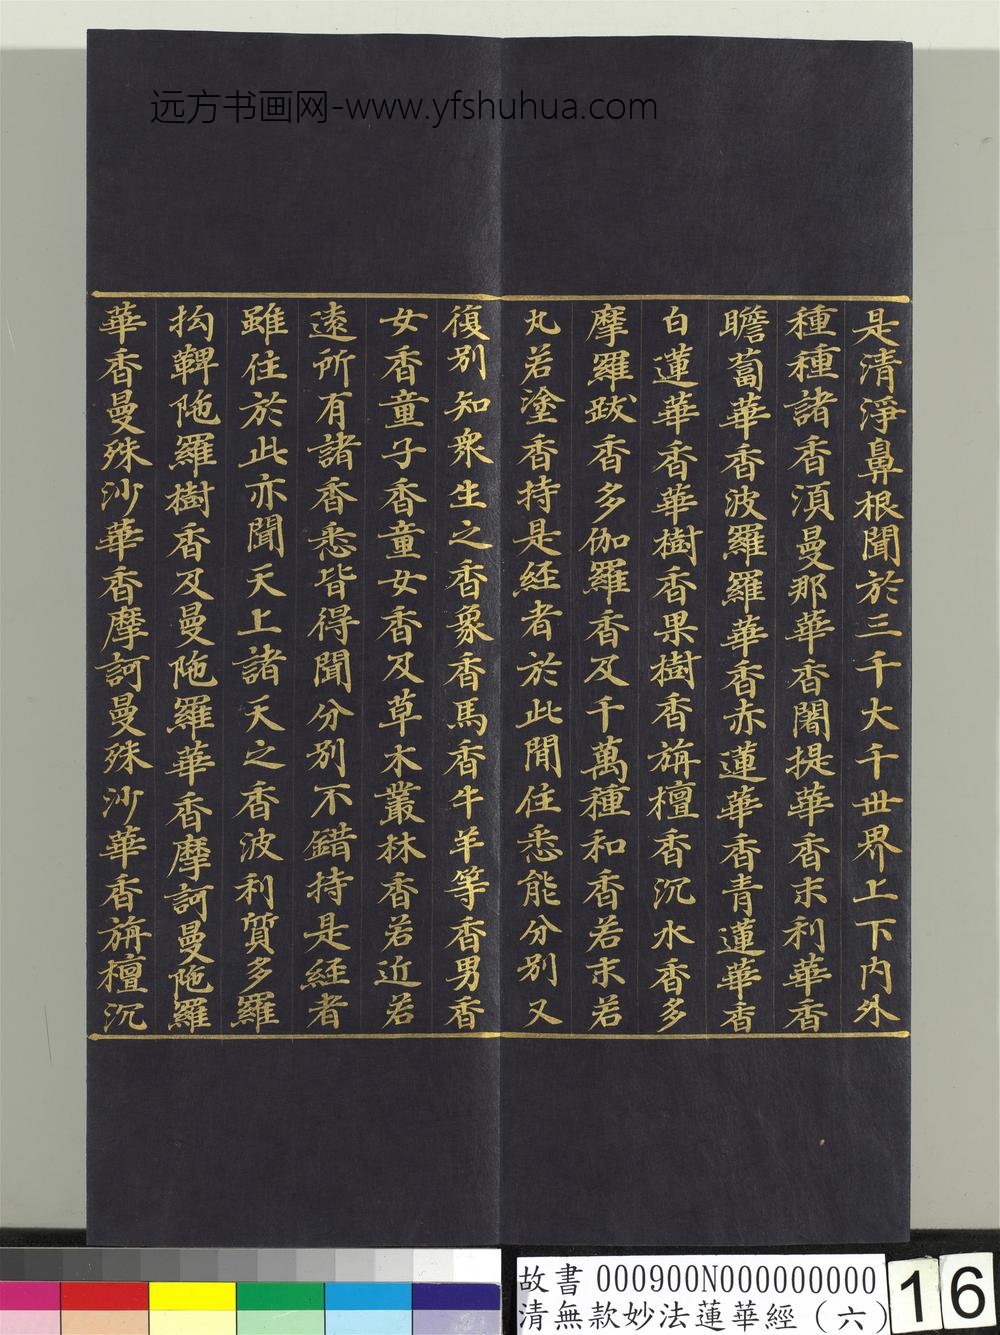 远方书画网-www.yfshuhua.com
是清淨鼻根聞於三千大千世界上下內外
種種諸香湏曼那華香闍提華香末利華香
瞻蔔華香波羅羅華香赤蓮華香青蓮華香
白蓮華香華樹香果樹香旃檀香沉水香多
摩羅跋香多伽羅香及千萬種和香若末若
丸若塗香持是經者於此間住悉能分別又
復別知衆生之香象香馬香牛羊等香男香
女香童子香童女香及草木叢林香若近若
遠所有諸香悉皆得聞分別不錯持是經者
雖住於此亦聞天上諸天之香波利質多羅
拘鞞陁羅樹香及曼陁羅華香摩訶曼陁羅
華香曼殊沙華香摩訶曼殊沙華香旃檀沉
故書 000900N000000000
清無款妙法蓮華經（六）
16